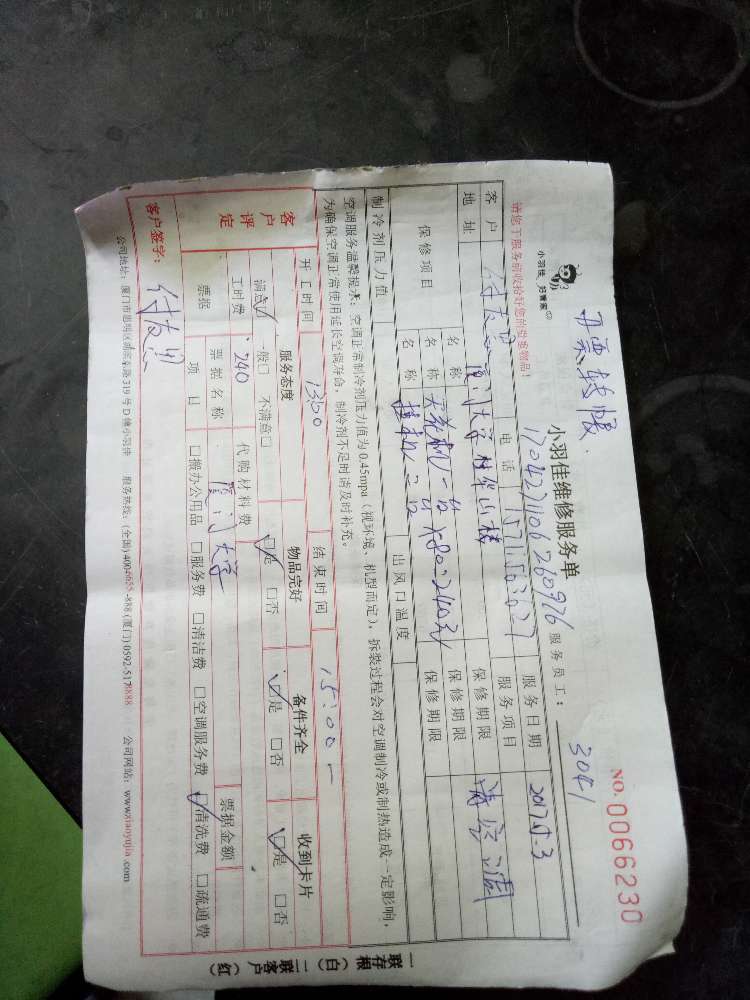 开票转账.
NO.0066230
小羽佳 好管家
小羽佳维修服务单
服务员工：3041
请您于服务前收拾好您的贵重物品！
17042711106260976
客户
电话
服务日期 2017.5.3
地址 厦门大学
服务项目 清洗空调
保修项目
名称
保修期限
名称
保修期限
名称 挂机二台
保修期限
制冷剂压力值
出风口温度
空调服务温馨提示：空调正常制冷剂压力值为0.45mpa（视环境、机型而定），拆装过程会对空调制冷或制热造成一定影响，
为确保空调正常使用延长空调寿命，制冷剂不足时请及时补充。
客户评定
开工时间 13:00
结束时间 15:00
服务态度
物品完好
备件齐全
收到卡片
满意☑ 一般□ 不满意□
☑是 □否
☑是 □否
☑是 □否
工时费 240
代购材料费
票据
票据名称 厦门大学
票据金额
项目 □搬办公用品 □服务费 □清洁费 □空调服务费 ☑清洗费 □疏通费
客户签字：
公司地址：厦门市思明区湖滨南路319号D幢小羽佳 服务热线：(全国)4004655-888 (厦门)0592-5178888 公司网站：www.xiaoyujia.com
一联存根（白） 二联客户（红）